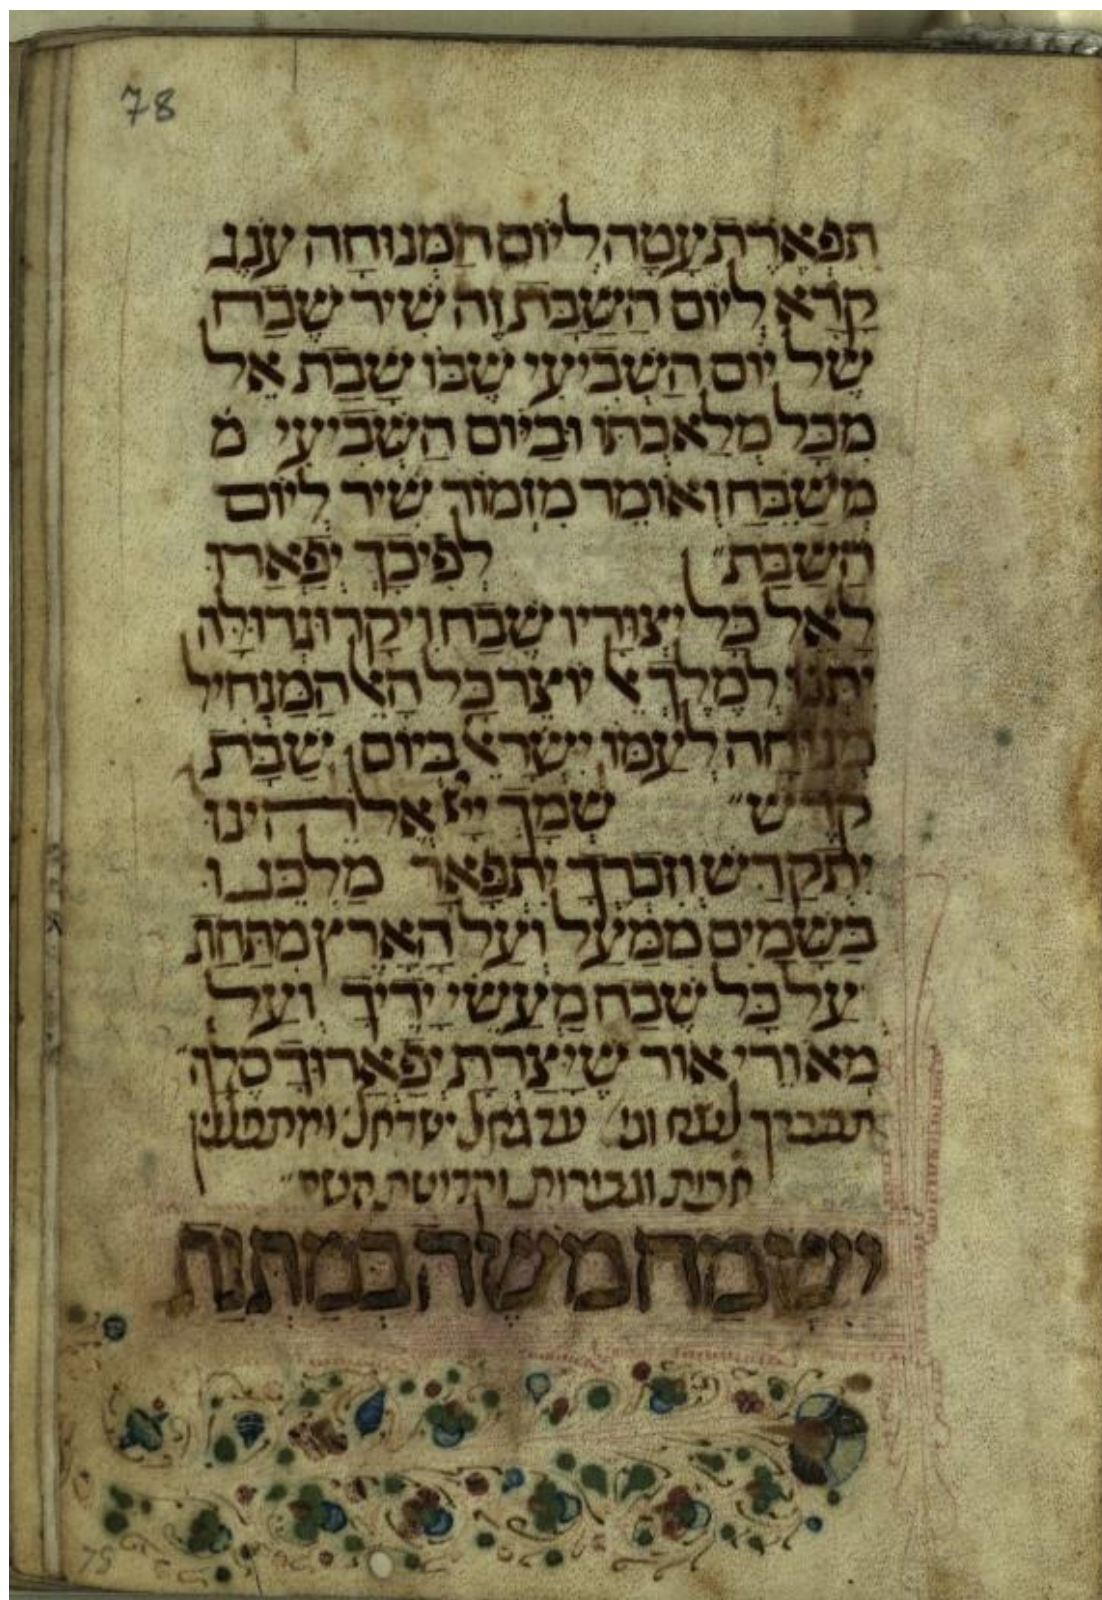 78
תִּפְאֶרֶת עָטָה לְיוֹם הַמְּנוּחָה עֹנֶג
קָרָא לְיוֹם הַשַּׁבָּת זֶה שִׁיר שֶׁבַח
שֶׁל יוֹם הַשְּׁבִיעִי שֶׁבּוֹ שָׁבַת אֵל
מִכָּל מְלַאכְתּוֹ וּבְיוֹם הַשְּׁבִיעִי מ
מְשַׁבֵּחַ וְאוֹמֵר מִזְמוֹר שִׁיר לְיוֹם
הַשַּׁבָּת״ לְפִיכָךְ יְפָאֲרוּ
לָאֵל כָּל יְצוּרָיו שֶׁבַח וִיקָר וּגְדוּלָּה
יִתְּנוּ לְמֶלֶךְ אֵל יוֹצֵר כָּל הָאֵל הַמַּנְחִיל
מְנוּחָה לְעַמּוֹ יִשְׂרָאֵל בְּיוֹם שַׁבָּת
קֹדֶשׁ״ שִׁמְךָ יְיָ אֱלֹהֵינוּ
יִתְקַדַּשׁ וְזִכְרְךָ יִתְפָּאַר מַלְכֵּנוּ
בַּשָּׁמַיִם מִמַּעַל וְעַל הָאָרֶץ מִתַּחַת
עַל כָּל שֶׁבַח מַעֲשֵׂי יָדֶיךָ וְעַל
מְאוֹרֵי אוֹר שֶׁיָּצַרְתָּ יְפָאֲרוּךָ סֶלָה״
תתברך לנצח וגו׳ עד גאל ישראל ומתפללין
אבות וגבורות וקדושת השם״
יִשְׂמַח מֹשֶׁה בְּמַתְּנַת